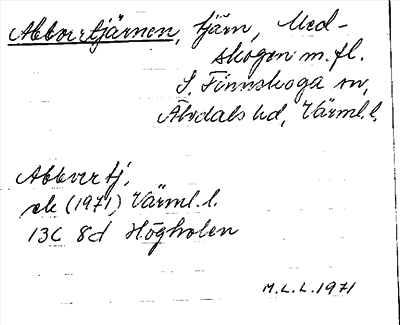 Abborrtjärnen, tjärn, Med-
skogen m.fl.
S. Finnskoga sn,
Älvdals hd, Värml.l.
Abborrtj.
ek (1971) Värml.l.
13C 8d Högholen
M.L.L.1971